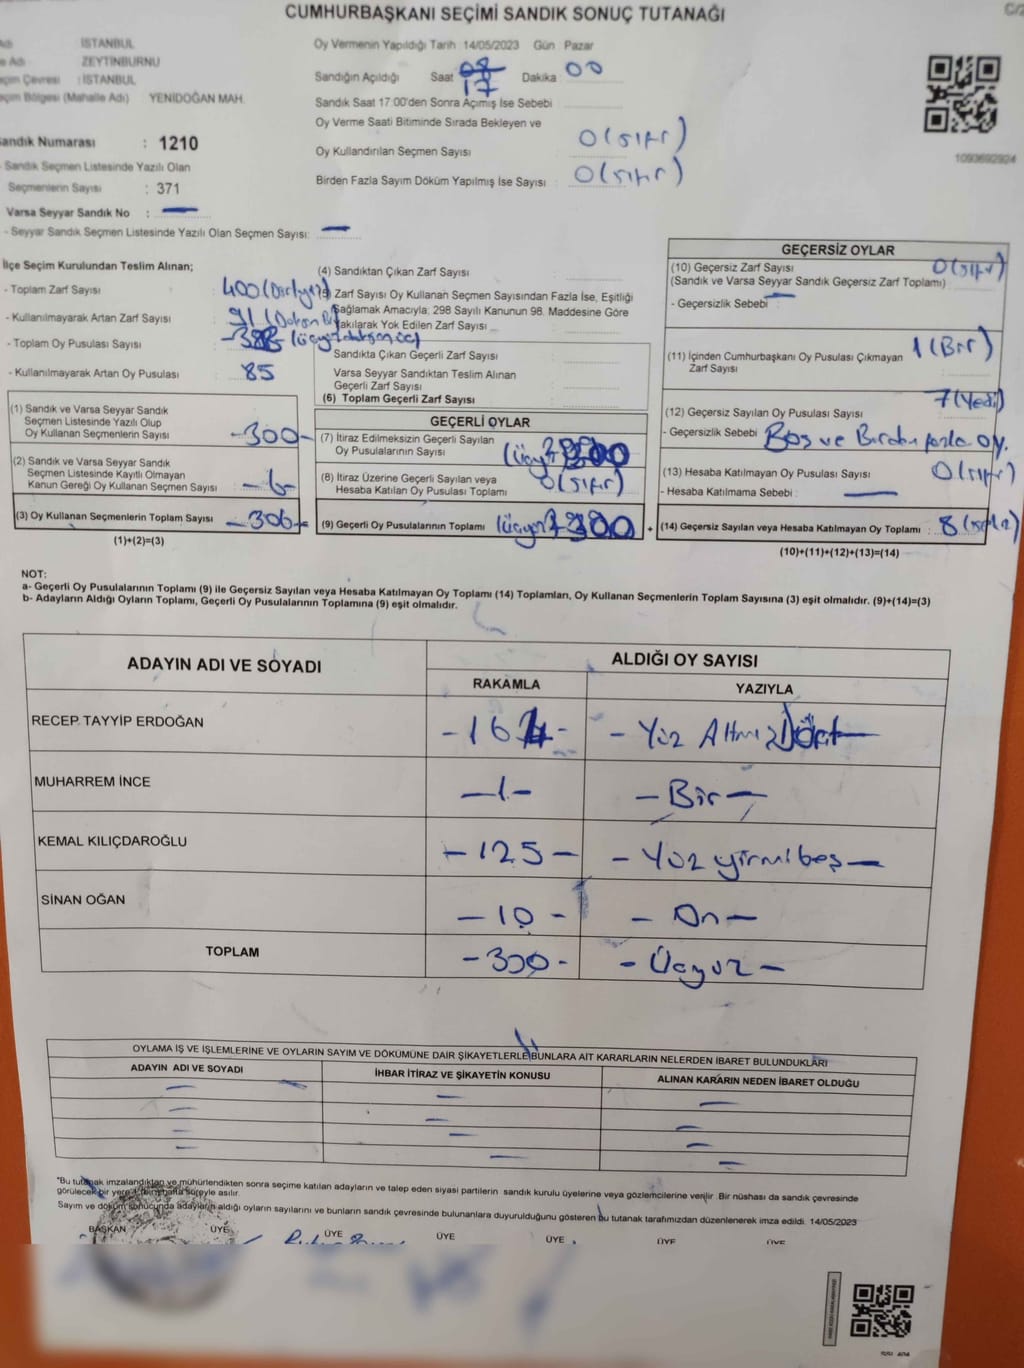 CUMHURBAŞKANI SEÇİMİ SANDIK SONUÇ TUTANAĞI
İSTANBUL
Adı ZEYTİNBURNU
Çevresi : İSTANBUL
Bölgesi (Mahalle Adı) YENİDOĞAN MAH.
Sandık Numarası : 1210
- Sandık Seçmen Listesinde Yazılı Olan
Seçmenlerin Sayısı : 371
Varsa Seyyar Sandık No : —
- Seyyar Sandık Seçmen Listesinde Yazılı Olan Seçmen Sayısı: —
Oy Vermenin Yapıldığı Tarih 14/05/2023 Gün Pazar
Sandığın Açıldığı Saat 17 Dakika 00
Sandık Saat 17:00'den Sonra Açımış İse Sebebi
Oy Verme Saati Bitiminde Sırada Bekleyen ve
Oy Kullandırılan Seçmen Sayısı 0 (sıfır)
Birden Fazla Sayım Döküm Yapılmış İse Sayısı 0 (sıfır)
1093692924
İlçe Seçim Kurulundan Teslim Alınan;
- Toplam Zarf Sayısı 400
- Kullanılmayarak Artan Zarf Sayısı 91
- Toplam Oy Pusulası Sayısı
- Kullanılmayarak Artan Oy Pusulası 85
(1) Sandık ve Varsa Seyyar Sandık
Seçmen Listesinde Yazılı Olup
Oy Kullanan Seçmenlerin Sayısı -300-
(2) Sandık ve Varsa Seyyar Sandık
Seçmen Listesinde Kayıtlı Olmayan
Kanun Gereği Oy Kullanan Seçmen Sayısı -6-
(3) Oy Kullanan Seçmenlerin Toplam Sayısı -306-
(1)+(2)=(3)
(4) Sandıktan Çıkan Zarf Sayısı
Zarf Sayısı Oy Kullanan Seçmen Sayısından Fazla İse, Eşitliği
Sağlamak Amacıyla; 298 Sayılı Kanunun 98. Maddesine Göre
Yakılarak Yok Edilen Zarf Sayısı
Sandıkta Çıkan Geçerli Zarf Sayısı
Varsa Seyyar Sandıktan Teslim Alınan
Geçerli Zarf Sayısı
(6) Toplam Geçerli Zarf Sayısı
GEÇERLİ OYLAR
(7) İtiraz Edilmeksizin Geçerli Sayılan
Oy Pusulalarının Sayısı 300
(8) İtiraz Üzerine Geçerli Sayılan veya
Hesaba Katılan Oy Pusulası Toplamı 0 (sıfır)
(9) Geçerli Oy Pusulalarının Toplamı 300 +
GEÇERSİZ OYLAR
(10) Geçersiz Zarf Sayısı 0 (sıfır)
(Sandık ve Varsa Seyyar Sandık Geçersiz Zarf Toplamı)
- Geçersizlik Sebebi —
(11) İçinden Cumhurbaşkanı Oy Pusulası Çıkmayan 1 (Bir)
Zarf Sayısı
(12) Geçersiz Sayılan Oy Pusulası Sayısı 7 (Yedi)
- Geçersizlik Sebebi Boş ve Birden fazla oy.
(13) Hesaba Katılmayan Oy Pusulası Sayısı 0 (sıfır)
- Hesaba Katılmama Sebebi : —
(14) Geçersiz Sayılan veya Hesaba Katılmayan Oy Toplamı : 8 (sekiz)
(10)+(11)+(12)+(13)=(14)
NOT:
a- Geçerli Oy Pusulalarının Toplamı (9) ile Geçersiz Sayılan veya Hesaba Katılmayan Oy Toplamı (14) Toplamları, Oy Kullanan Seçmenlerin Toplam Sayısına (3) eşit olmalıdır. (9)+(14)=(3)
b- Adayların Aldığı Oyların Toplamı, Geçerli Oy Pusulalarının Toplamına (9) eşit olmalıdır.
ADAYIN ADI VE SOYADI ALDIĞI OY SAYISI
RAKAMLA YAZIYLA
RECEP TAYYİP ERDOĞAN -164- - Yüz Altmış Dört -
MUHARREM İNCE -1- - Bir -
KEMAL KILIÇDAROĞLU -125- - Yüz yirmi beş -
SİNAN OĞAN -10- - On -
TOPLAM -300- - Üçyüz -
OYLAMA İŞ VE İŞLEMLERİNE VE OYLARIN SAYIM VE DÖKÜMÜNE DAİR ŞİKAYETLERLE BUNLARA AİT KARARLARIN NELERDEN İBARET BULUNDUKLARI
ADAYIN ADI VE SOYADI İHBAR İTİRAZ VE ŞİKAYETİN KONUSU ALINAN KARARIN NEDEN İBARET OLDUĞU
*Bu tutanak imzalandıktan ve mühürlendikten sonra seçime katılan adayların ve talep eden siyasi partilerin sandık kurulu üyelerine veya gözlemcilerine verilir. Bir nüshası da sandık çevresinde
görülecek bir yere 1 (bir) hafta süreyle asılır.
Sayım ve döküm sonucunda adayların aldığı oyların sayılarını ve bunların sandık çevresinde bulunanlara duyurulduğunu gösteren bu tutanak tarafımızdan düzenlenerek imza edildi. 14/05/2023
BAŞKAN ÜYE ÜYE ÜYE ÜYE ÜYE ÜYE